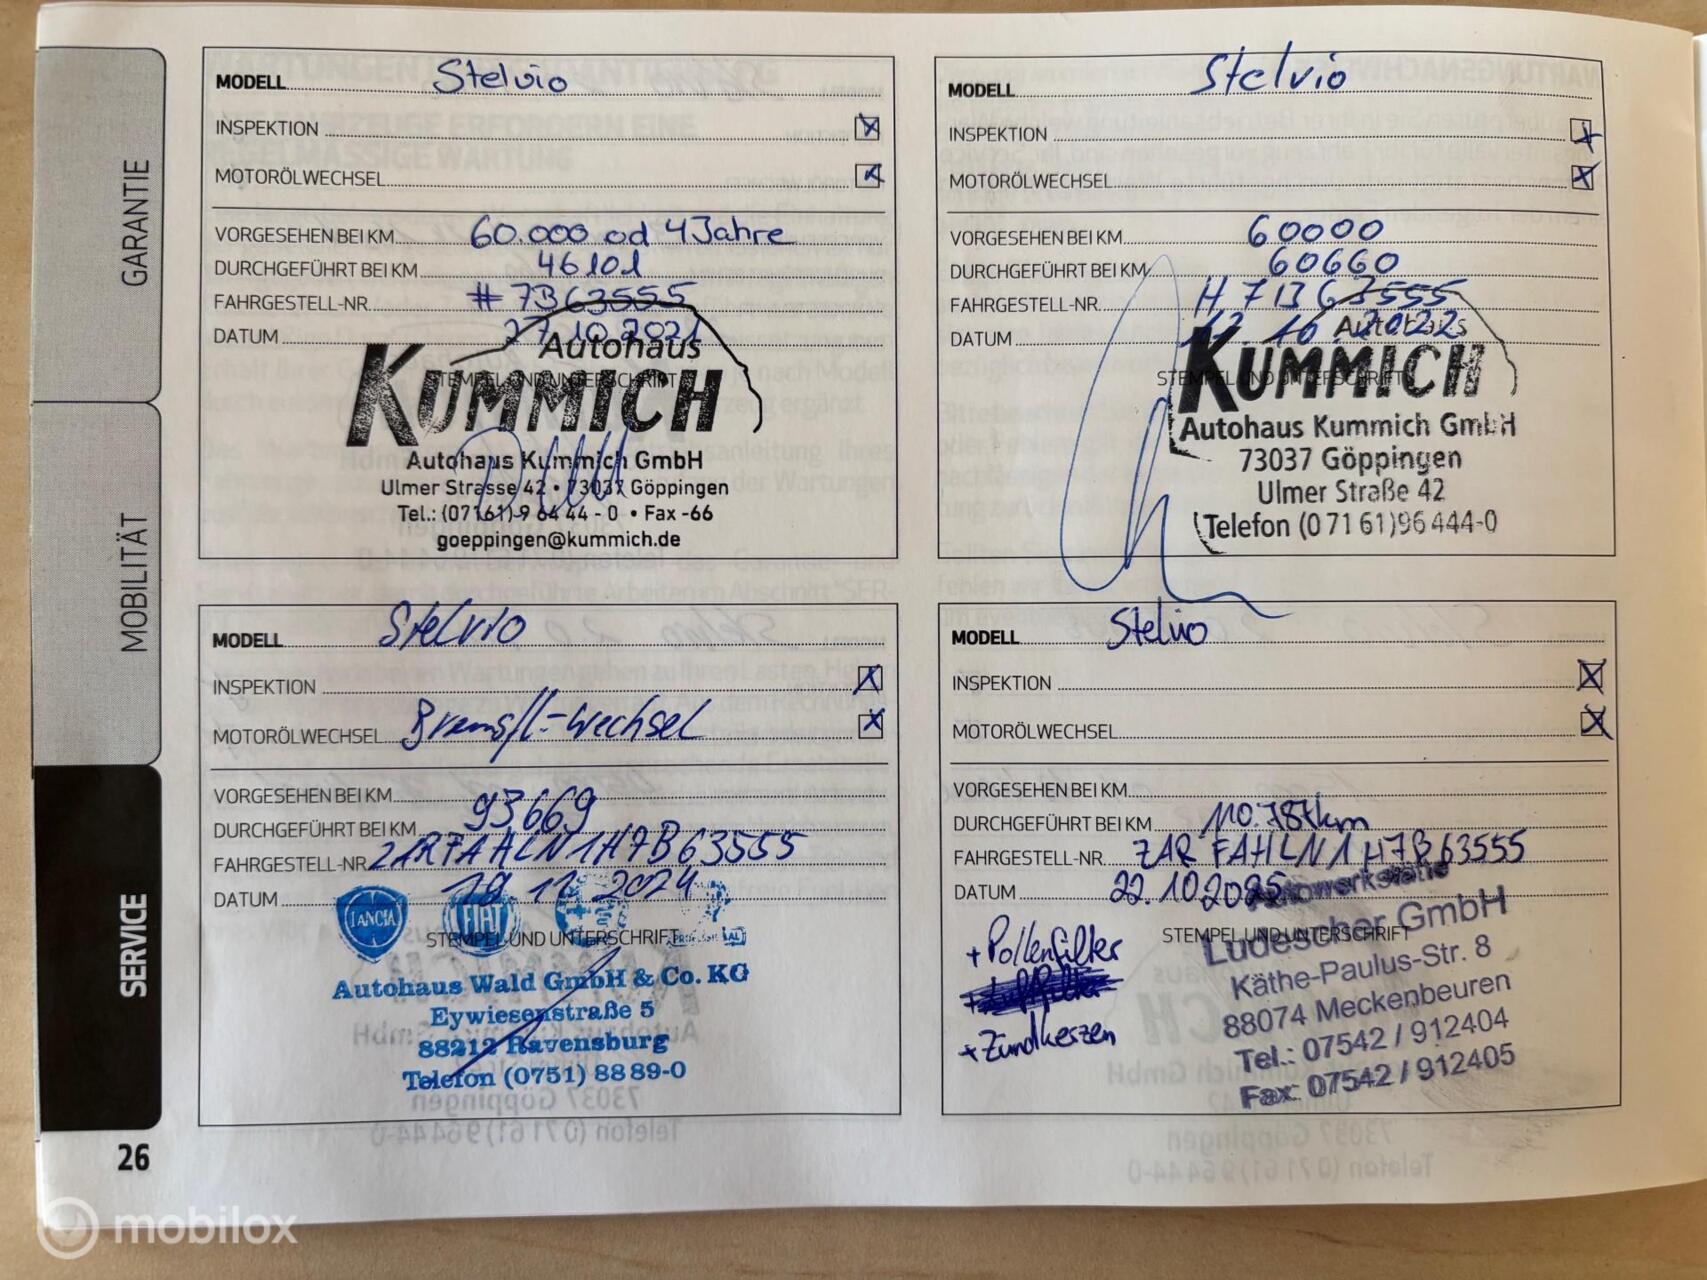 GARANTIE
MOBILITÄT
SERVICE
MODELL Stelvio
INSPEKTION
MOTORÖLWECHSEL
VORGESEHEN BEI KM 60.000 od 4 Jahre
DURCHGEFÜHRT BEI KM 46101
FAHRGESTELL-NR. # 7B63555
DATUM 27.10.2021
STEMPEL UND UNTERSCHRIFT
Autohaus
KUMMICH
Autohaus Kummich GmbH
Ulmer Strasse 42 • 73037 Göppingen
Tel.: (07161) 9 64 44 - 0 • Fax -66
goeppingen@kummich.de
MODELL Stelvio
INSPEKTION
MOTORÖLWECHSEL
VORGESEHEN BEI KM 60000
DURCHGEFÜHRT BEI KM 60660
FAHRGESTELL-NR. H 7B63555
DATUM 10 2022
STEMPEL UND UNTERSCHRIFT
Autohaus
KUMMICH
Autohaus Kummich GmbH
73037 Göppingen
Ulmer Straße 42
Telefon (0 71 61) 96 444-0
MODELL Stelvio
INSPEKTION
MOTORÖLWECHSEL Bremsfl.-wechsel
VORGESEHEN BEI KM
DURCHGEFÜHRT BEI KM 93669
FAHRGESTELL-NR. ZARFAHLN1H7B63555
DATUM 2024
LANCIA FIAT
STEMPEL UND UNTERSCHRIFT
Autohaus Wald GmbH & Co. KG
Eywiesenstraße 5
88212 Ravensburg
Telefon (0751) 88 89-0
MODELL Stelvio
INSPEKTION
MOTORÖLWECHSEL
VORGESEHEN BEI KM
DURCHGEFÜHRT BEI KM 110.787km
FAHRGESTELL-NR. ZAR FAHLN1H7B63555
DATUM 22.10.2025
STEMPEL UND UNTERSCHRIFT
+ Pollenfilter
+ Zündkerzen
Autowerkstatt
Ludescher GmbH
Käthe-Paulus-Str. 8
88074 Meckenbeuren
Tel.: 07542 / 912404
Fax: 07542 / 912405
26
mobilox